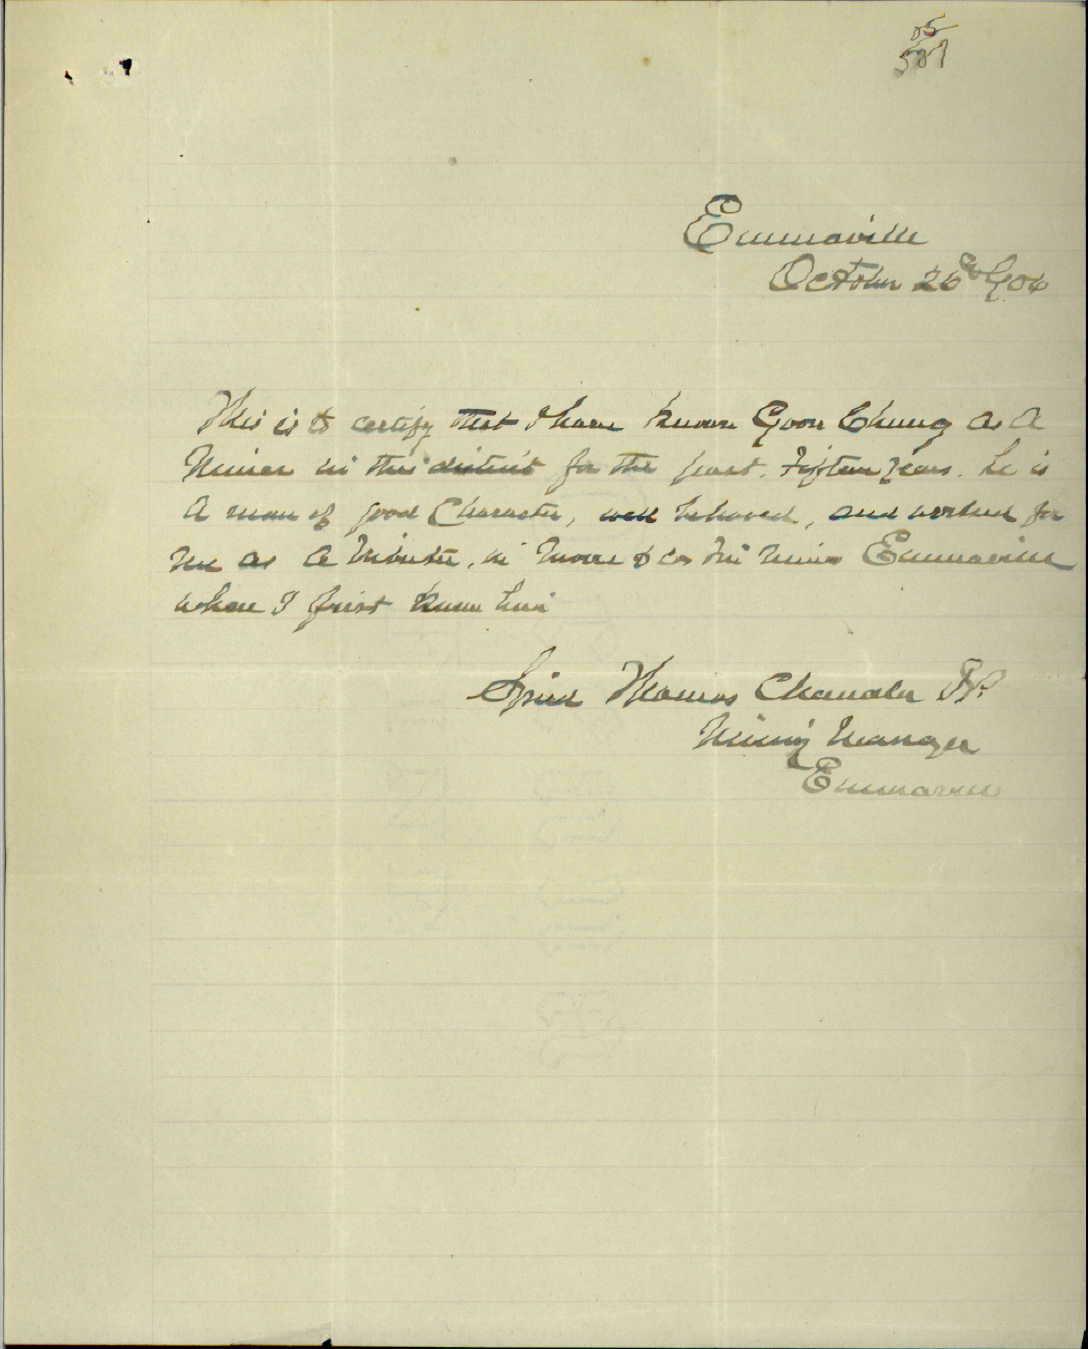 05
587
Emmaville
October 26th 1906
This is to certify that I have known Goon Chung as A
Miner in this district for the past. Fifteen years. he is
A man of good Character, well behaved, and worked for
me as A tributer, in Moore & Cos Tin Mines Emmaville
where I first knew him
Signed Thomas Chandler JP.
Mining Manager
Emmaville